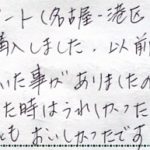 ート(名古屋-港区
購入しました. 以前
いた事がありましたの
た時はうれしかった
とも おいしかったです